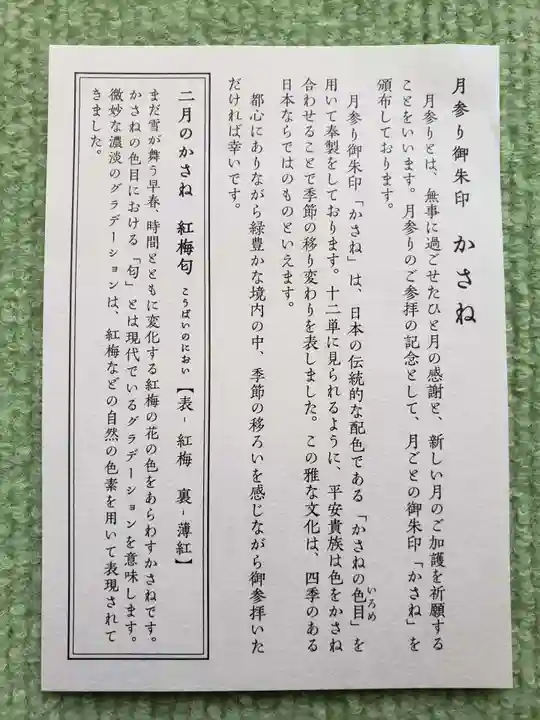 月参り御朱印 かさね
月参りとは、無事に過ごせたひと月の感謝と、新しい月のご加護を祈願する
ことをいいます。月参りのご参拝の記念として、月ごとの御朱印「かさね」を
頒布しております。
月参り御朱印「かさね」は、日本の伝統的な配色である「かさねの色目」を
いろめ
用いて奉製をしております。十二単に見られるように、平安貴族は色をかさね
合わせることで季節の移り変わりを表しました。この雅な文化は、四季のある
日本ならではのものといえます。
都心にありながら緑豊かな境内の中、季節の移ろいを感じながら御参拝いた
だければ幸いです。
二月のかさね 紅梅匂 こうばいのにおい 【表-紅梅 裏-薄紅】
まだ雪が舞う早春、時間とともに変化する紅梅の花の色をあらわすかさねです。
かさねの色目における「匂」とは現代でいるグラデーションを意味します。
微妙な濃淡のグラデーションは、紅梅などの自然の色素を用いて表現されて
きました。